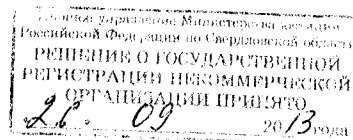 Главное управление Министерства юстиции
Российской Федерации по Свердловской области
РЕШЕНИЕ О ГОСУДАРСТВЕННОЙ
РЕГИСТРАЦИИ НЕКОММЕРЧЕСКОЙ
ОРГАНИЗАЦИИ ПРИНЯТО
«26» 09 2013 года